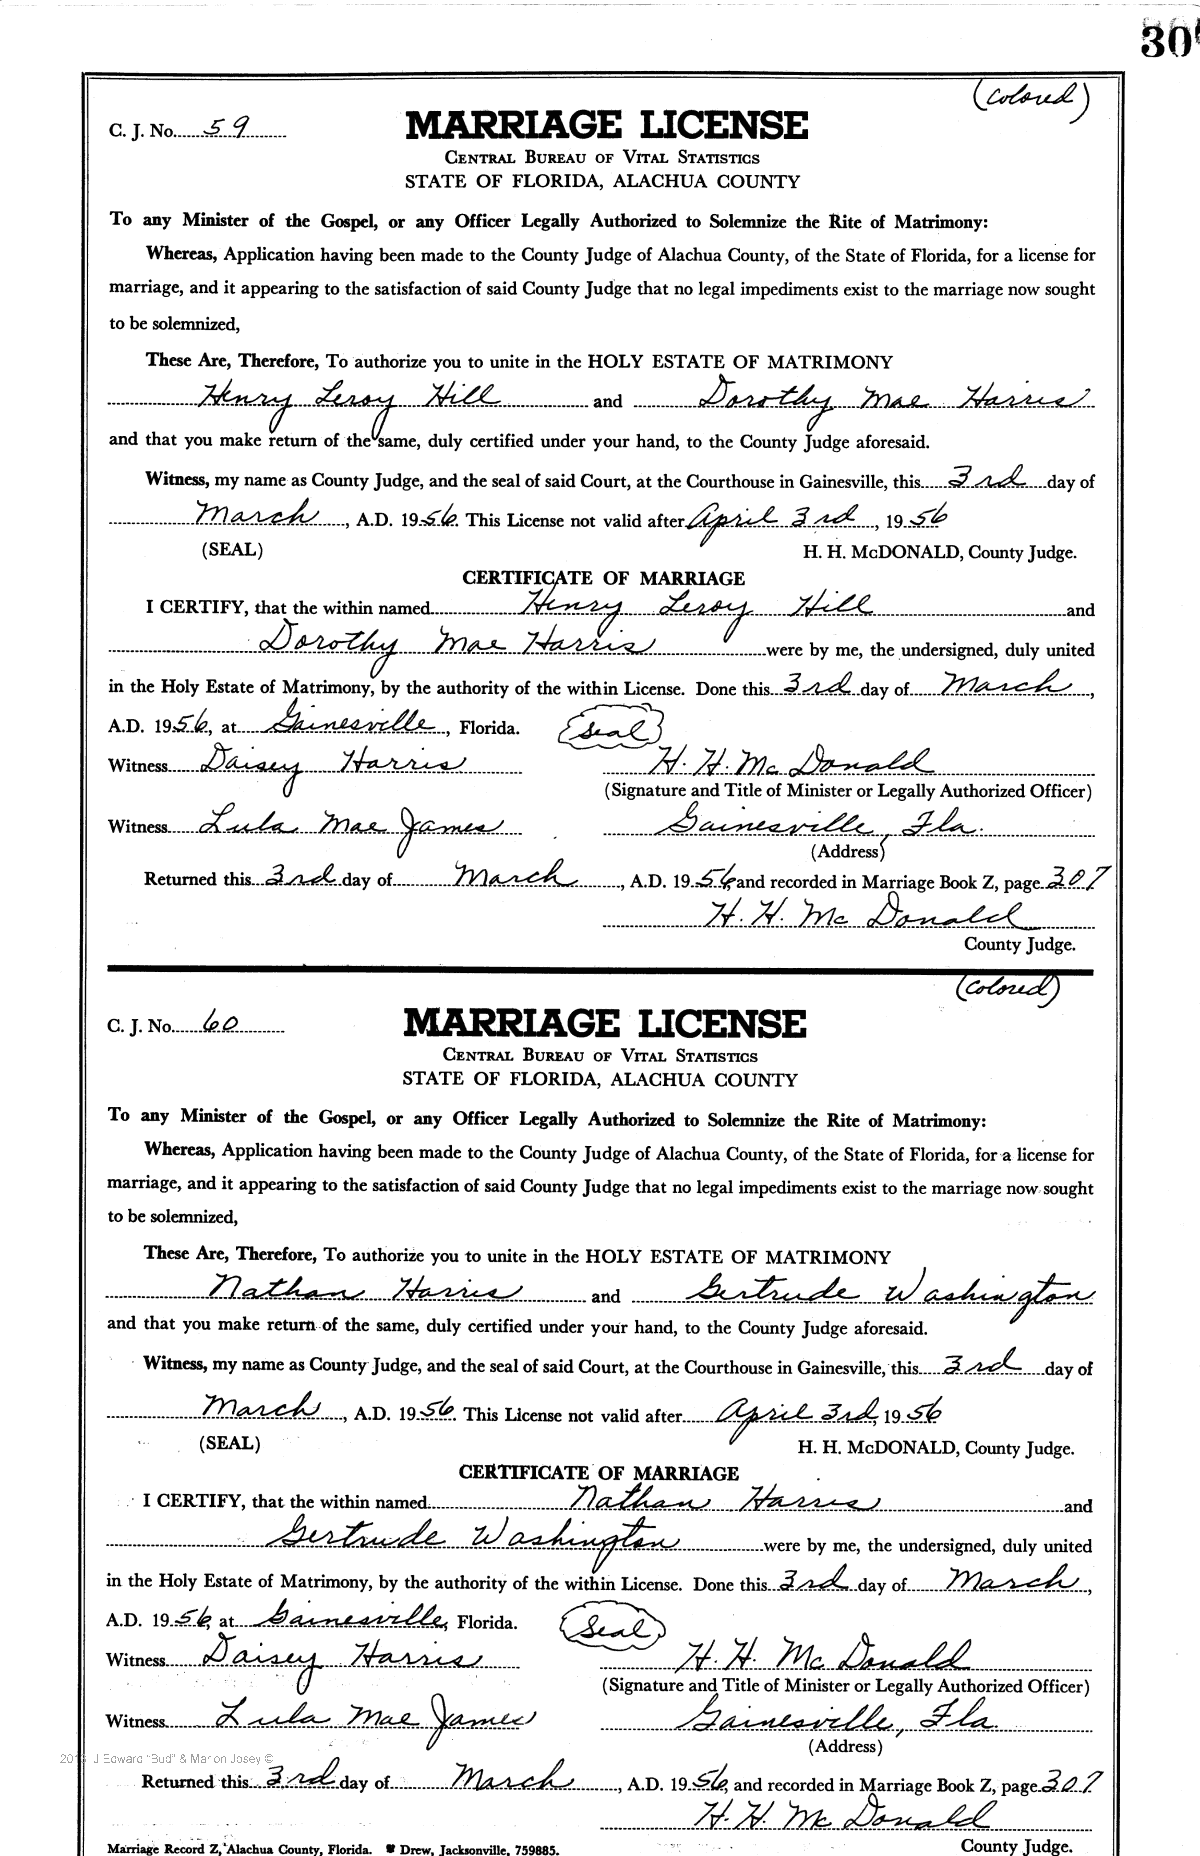 30
(colored)
C. J. No. 59
MARRIAGE LICENSE
CENTRAL BUREAU OF VITAL STATISTICS
STATE OF FLORIDA, ALACHUA COUNTY
To any Minister of the Gospel, or any Officer Legally Authorized to Solemnize the Rite of Matrimony:
Whereas, Application having been made to the County Judge of Alachua County, of the State of Florida, for a license for
marriage, and it appearing to the satisfaction of said County Judge that no legal impediments exist to the marriage now sought
to be solemnized,
These Are, Therefore, To authorize you to unite in the HOLY ESTATE OF MATRIMONY
Henry Leroy Hill and Dorothy Mae Harris
and that you make return of the same, duly certified under your hand, to the County Judge aforesaid.
Witness, my name as County Judge, and the seal of said Court, at the Courthouse in Gainesville, this 3rd day of
March, A.D. 1956. This License not valid after April 3rd, 1956
(SEAL) H. H. McDONALD, County Judge.
CERTIFICATE OF MARRIAGE
I CERTIFY, that the within named Henry Leroy Hill and
Dorothy Mae Harris were by me, the undersigned, duly united
in the Holy Estate of Matrimony, by the authority of the within License. Done this 3rd day of March,
A.D. 1956, at Gainesville, Florida. Seal
Witness Daisey Harris H. H. McDonald
(Signature and Title of Minister or Legally Authorized Officer)
Witness Lula Mae James Gainesville, Fla.
(Address)
Returned this 3rd day of March, A.D. 1956, and recorded in Marriage Book Z, page 307
H. H. McDonald
County Judge.
(colored)
C. J. No. 60
MARRIAGE LICENSE
CENTRAL BUREAU OF VITAL STATISTICS
STATE OF FLORIDA, ALACHUA COUNTY
To any Minister of the Gospel, or any Officer Legally Authorized to Solemnize the Rite of Matrimony:
Whereas, Application having been made to the County Judge of Alachua County, of the State of Florida, for a license for
marriage, and it appearing to the satisfaction of said County Judge that no legal impediments exist to the marriage now sought
to be solemnized,
These Are, Therefore, To authorize you to unite in the HOLY ESTATE OF MATRIMONY
Nathan Harris and Gertrude Washington
and that you make return of the same, duly certified under your hand, to the County Judge aforesaid.
Witness, my name as County Judge, and the seal of said Court, at the Courthouse in Gainesville, this 3rd day of
March, A.D. 1956. This License not valid after April 3rd, 1956
(SEAL) H. H. McDONALD, County Judge.
CERTIFICATE OF MARRIAGE
I CERTIFY, that the within named Nathan Harris and
Gertrude Washington were by me, the undersigned, duly united
in the Holy Estate of Matrimony, by the authority of the within License. Done this 3rd day of March,
A.D. 1956, at Gainesville, Florida. Seal
Witness Daisey Harris H. H. McDonald
(Signature and Title of Minister or Legally Authorized Officer)
Witness Lula Mae James Gainesville, Fla.
(Address)
J Edward "Bud" & Marion Josey ©
Returned this 3rd day of March, A.D. 1956, and recorded in Marriage Book Z, page 307
H. H. McDonald
County Judge.
Marriage Record Z, Alachua County, Florida. Drew, Jacksonville, 759885.